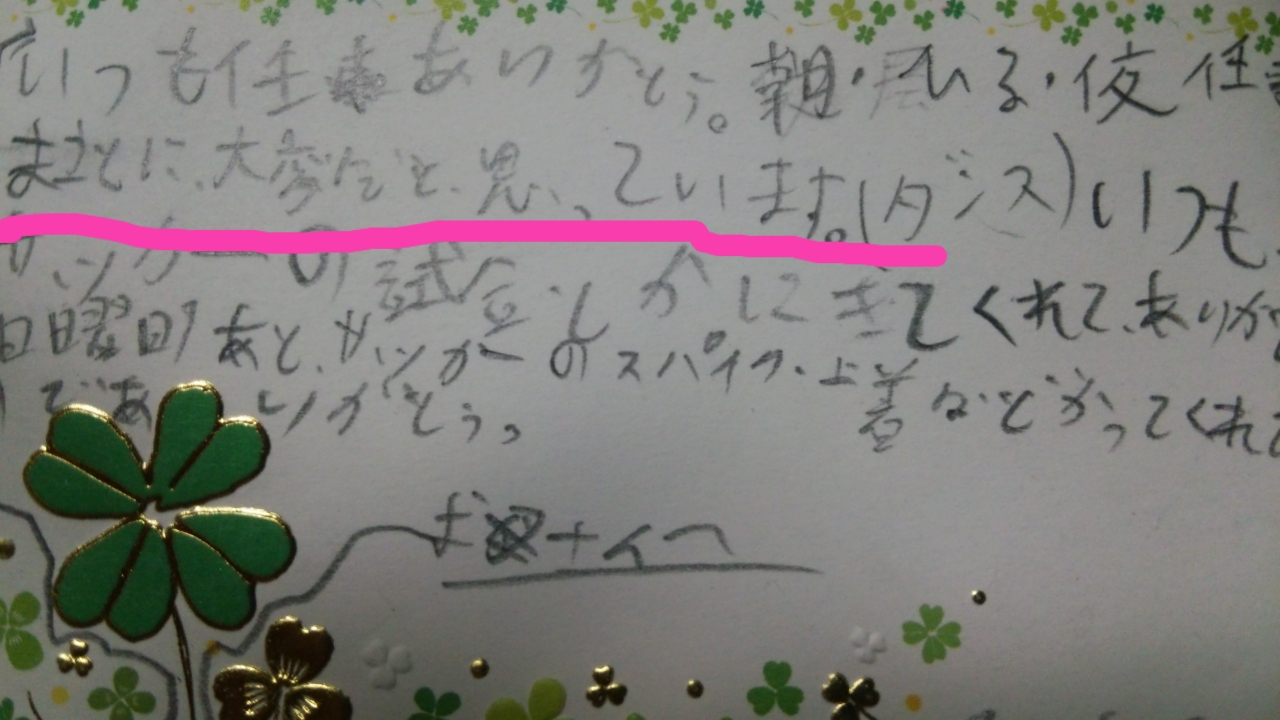 いつも仕事ありがとう。朝・ひる・夜仕事
まことに、大変だと、思っています。(ダンス)いつも、
サッカーの試合しかにきてくれて、ありがと
日曜日あと、サッカーのスパイク・上着などかってくれて
であ りがとう。